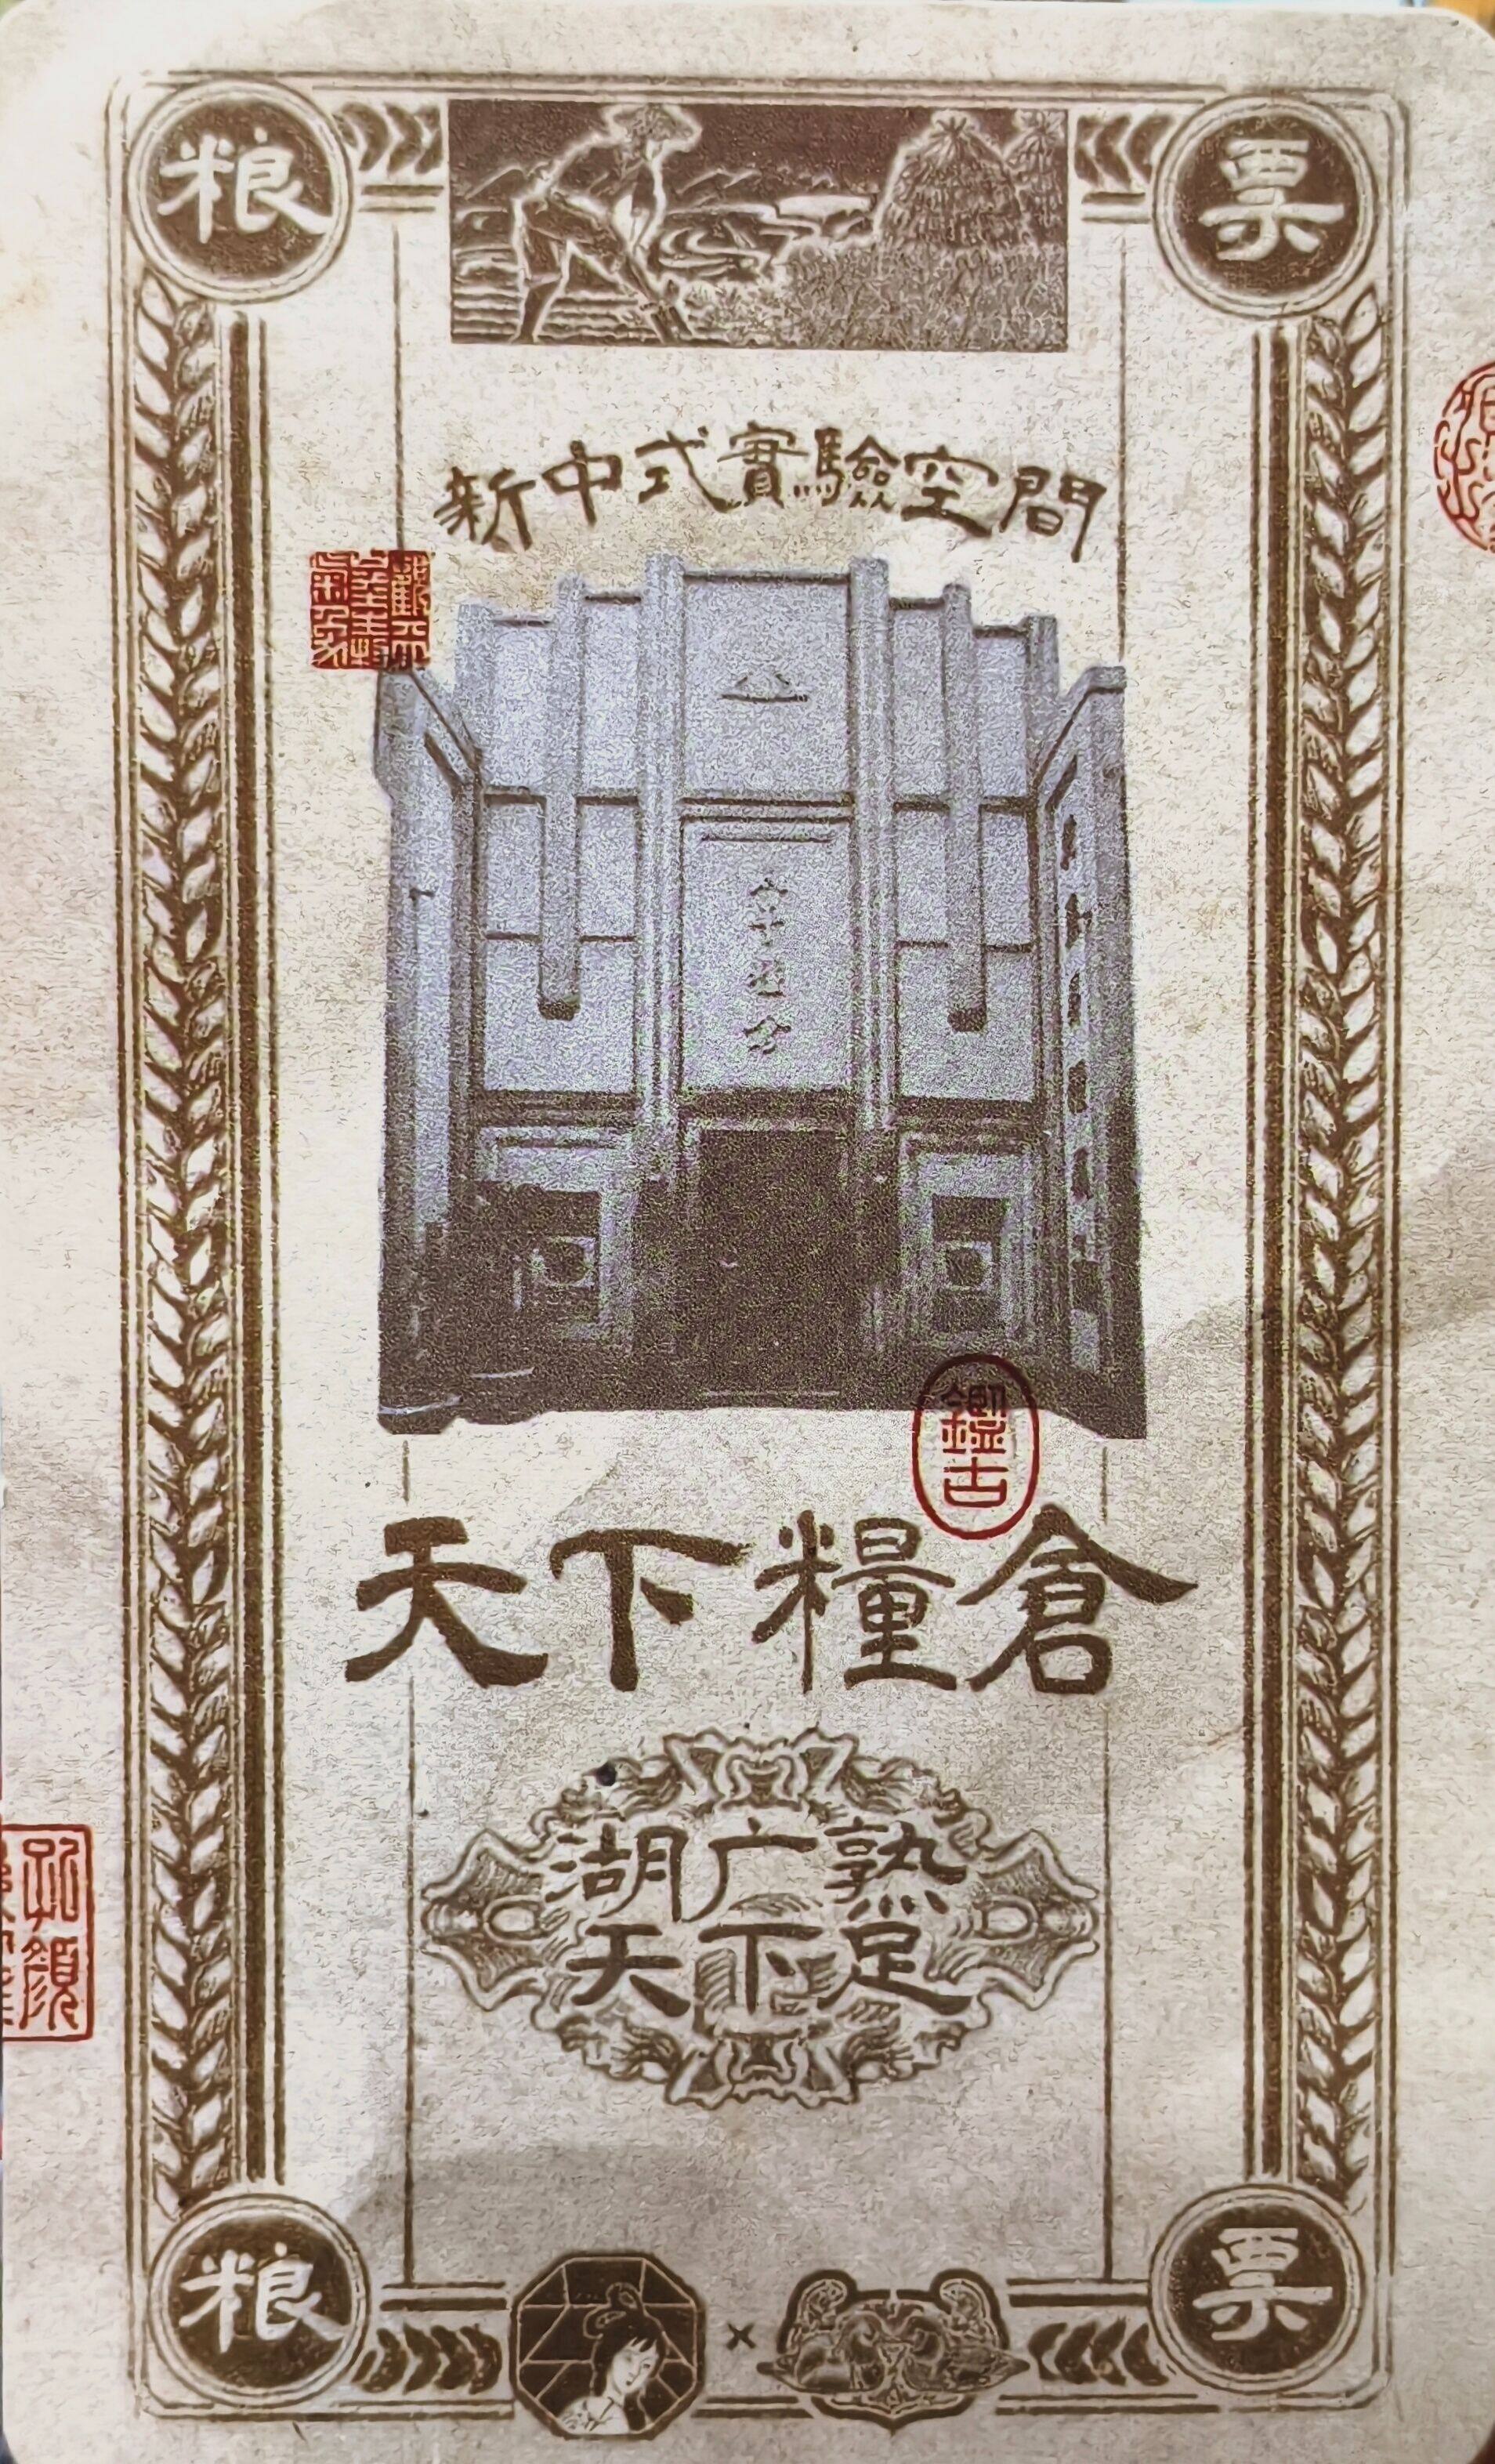 粮 票
新中式實驗空間
鑑古
天下糧倉
湖广熟
天下足
粮 × 票